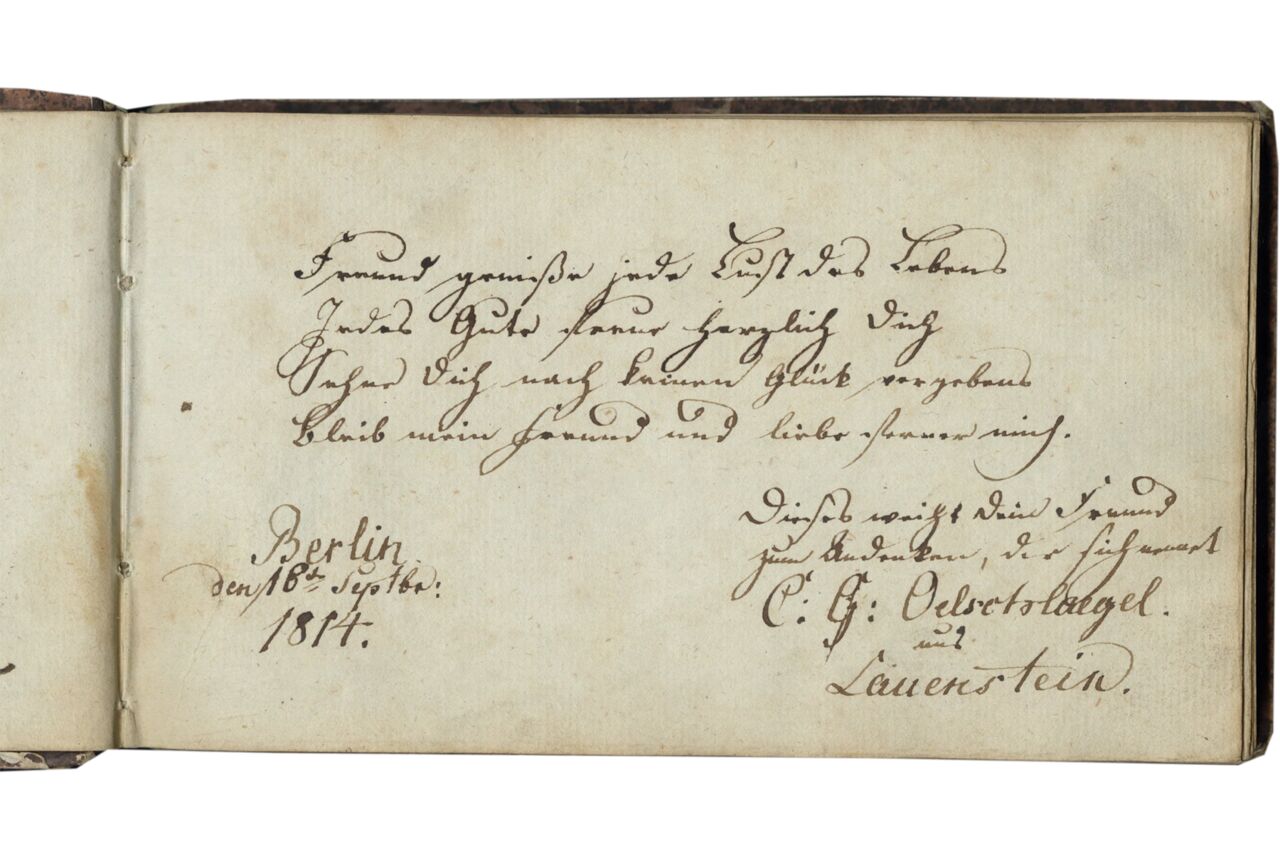 Freund genieße jede Lust des Lebens
Jedes Gute freue herzlich Dich
Sehne Dich nach keinen Glück vergebens
Bleib mein Freund und liebe ferner mich.
Dieses weiht dein Freund
zum Andenken, der sich nennt
C. G: Oelschlaegel.
aus
Lauenstein.
Berlin
den 16t Septbr:
1814.